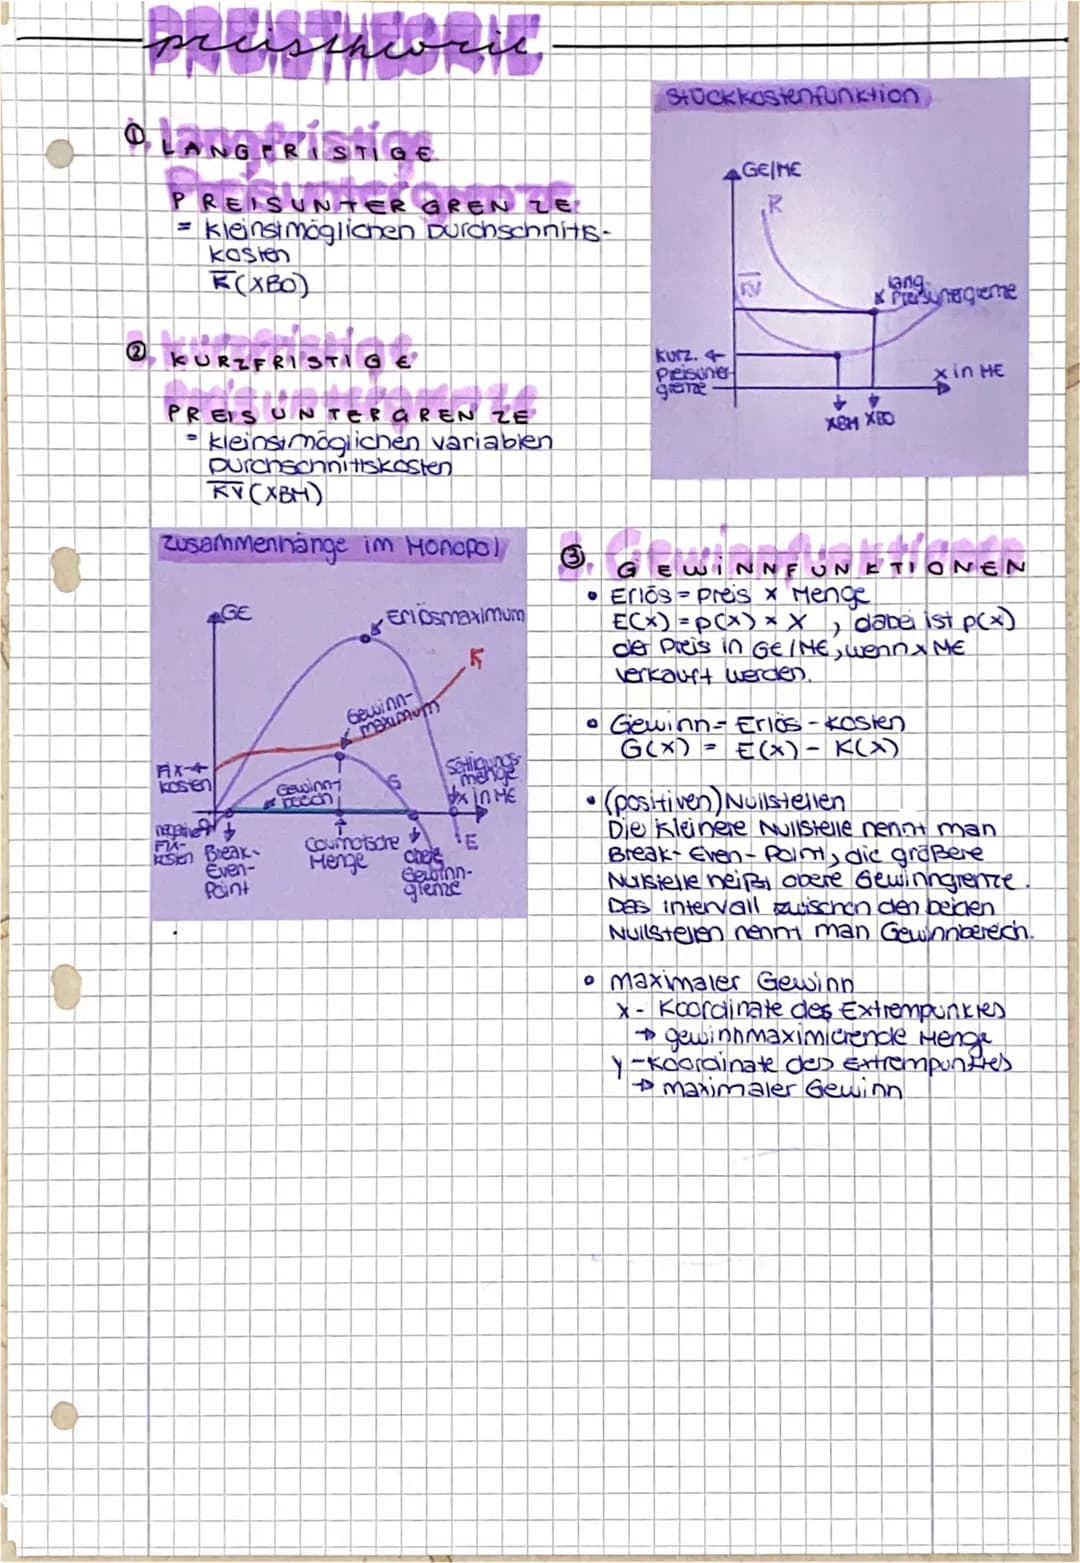 PREISTHEORIE
preistheorie
①. LANGFRISTIGE
PREISUNTERGRENZE
= kleinstmöglichen Durchschnitts-
kosten
K̅(XBO)
②. KURZFRISTIGE
PREISUNTERGRENZE
= kleinstmöglichen variablen
Durchschnittskosten
K̅V(XBM)
Stückkostenfunktion
GE/ME
K̅
K̅V
lang.
Preisuntergrenze
kurz.
Preisunter-
grenze
x in ME
XBM XBO
Zusammenhänge im Monopol
GE
Erlösmaximum
K
Gewinn-
maximum
Fix-
kosten
Sättigungs-
menge
x in ME
Gewinn-
bereich
G
negative
Fix-
kosten
Break-
Even-
Point
Cournotsche
Menge
obere
Gewinn-
grenze
E
③. GEWINNFUNKTIONEN
• Erlös = Preis x Menge
E(x) = p(x) x X , dabei ist p(x)
der Preis in GE/ME, wenn x ME
verkauft werden.
• Gewinn = Erlös - Kosten
G(x) = E(x) - K(x)
• (positiven) Nullstellen
Die kleinere Nullstelle nennt man
Break-Even-Point, die größere
Nullstelle heißt obere Gewinngrenze.
Das Intervall zwischen den beiden
Nullstellen nennt man Gewinnbereich.
• maximaler Gewinn
x - Koordinate des Extrempunktes
→ gewinnmaximierende Menge
y - Koordinate des Extrempunktes
→ maximaler Gewinn